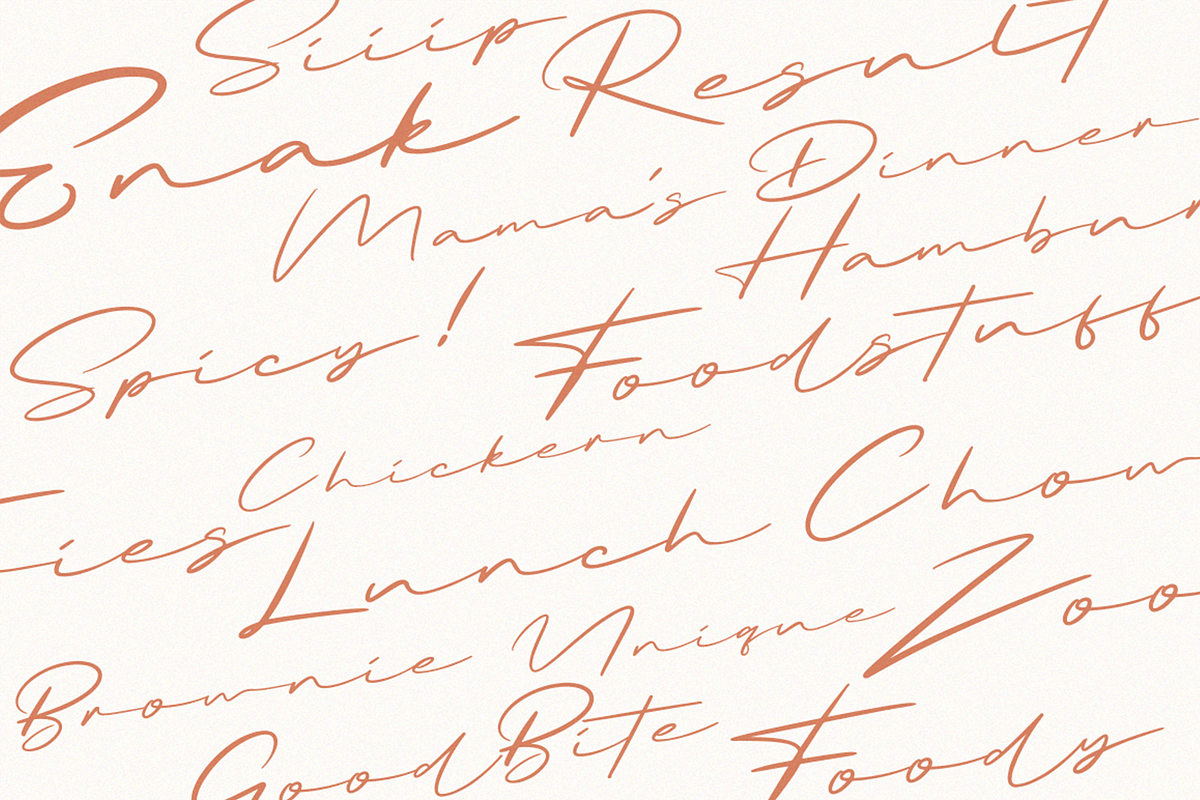 Siiip Result
Enak
Mama's Dinner
Hambur
Spicy! Foodstuff
Chickern
ies Lunch Chow
Brownie Unique Zoo
GoodBite Foody